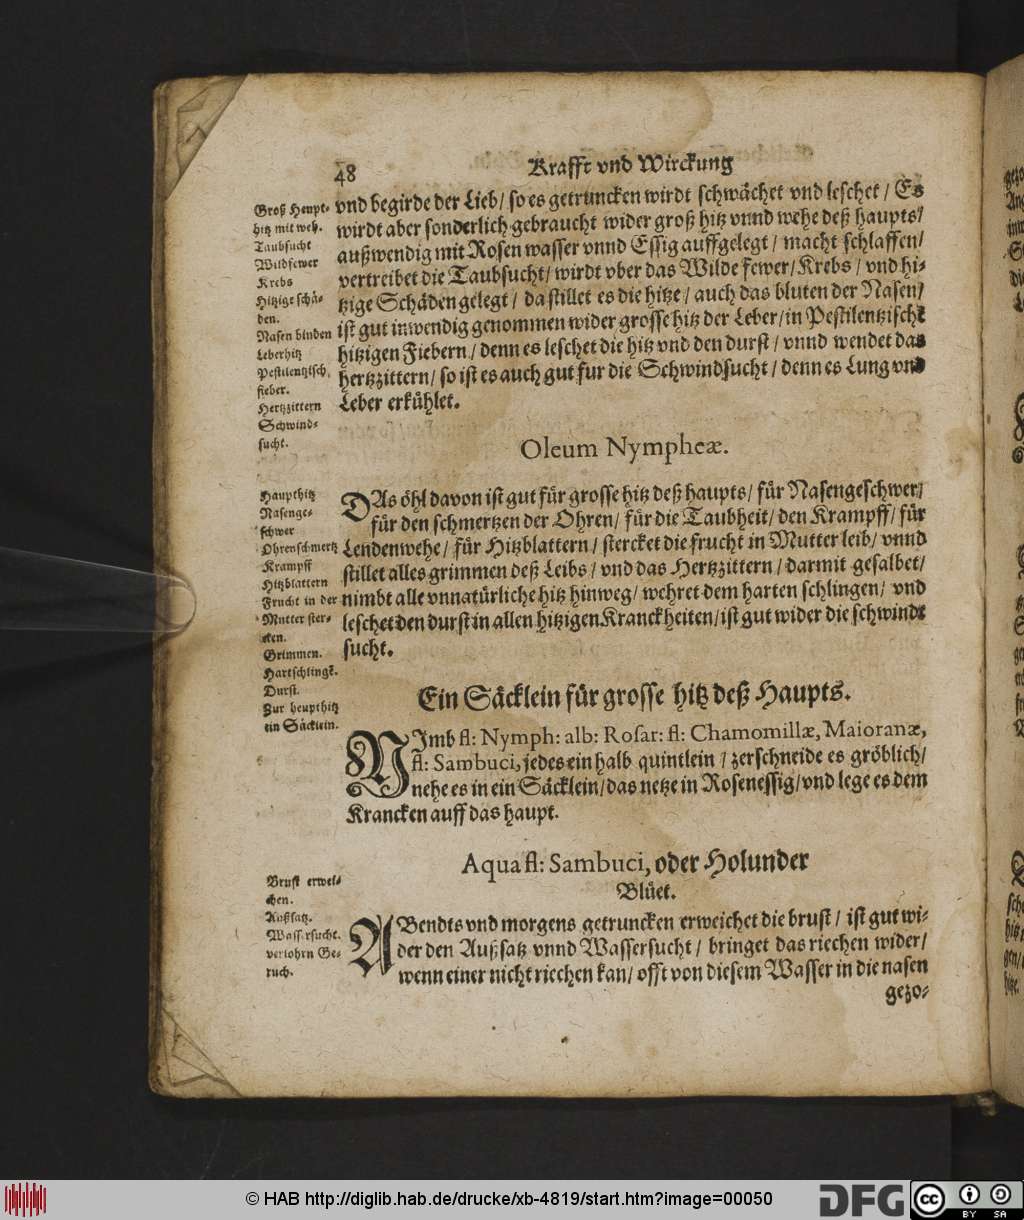 48
Krafft vnd Wirckung
vnd begirde der Lieb / so es getruncken wirdt schwächet vnd leschet / Es
wirdt aber sonderlich gebraucht wider groß hitz vnnd wehe deß haupts /
außwendig mit Rosen wasser vnnd Essig auffgelegt / macht schlaffen /
vertreibet die Taubsucht / wirdt vber das Wilde fewer / Krebs / vnd hi-
tzige Schäden gelegt / da stillet es die hitze / auch das bluten der Nasen /
ist gut inwendig genommen wider grosse hitz der Leber / in Pestilentzischẽ
hitzigen Fiebern / denn es leschet die hitz vnd den durst / vnnd wendet das
hertzzittern / so ist es auch gut fur die Schwindsucht / denn es Lung vnd
Leber erkühlet.
Groß Heupt-
hitz mit weh.
Taubsucht
Wildfewer
Krebs
Hitzige schä-
den.
Nasen binden
Leberhitz
Pestilentzisch
fieber.
Hertzzittern
Schwind-
sucht.
Oleum Nympheæ.
DAs öhl davon ist gut für grosse hitz deß haupts / für Nasengeschwer /
für den schmertzen der Ohren / für die Taubheit / den Krampff / für
Lendenwehe / für Hitzblattern / stercket die frucht in Mutter leib / vnnd
stillet alles grimmen deß Leibs / vnd das Hertzzittern / darmit gesalbet /
nimbt alle vnnatürliche hitz hinweg / wehret dem harten schlingen / vnd
leschet den durst in allen hitzigen Kranckheiten / ist gut wider die schwindt
sucht.
Haupthitz
Nasenge-
schwer
Ohrenschmertz
Krampff
Hitzblattern
Frucht in der
Mutter ster-
cken.
Grimmen.
Hartschlingẽ.
Durst.
Zur heupthitz
ein Säcklein.
Ein Säcklein für grosse hitz deß Haupts.
NImb fl: Nymph: alb: Rosar: fl: Chamomillæ, Maioranæ,
fl: Sambuci, jedes ein halb quintlein / zerschneide es gröblich /
nehe es in ein Säcklein / das netze in Rosenessig / vnd lege es dem
Krancken auff das haupt.
Aqua fl: Sambuci, oder Holunder
Blüet.
ABendts vnd morgens getruncken erweichet die brust / ist gut wi-
der den Außsatz vnnd Wassersucht / bringet das riechen wider /
wenn einer nicht riechen kan / offt von diesem Wasser in die nasen
gezo-
Brust erwei-
chen.
Außsatz.
Wassersucht.
verlohrn Ge-
ruch.
© HAB http://diglib.hab.de/drucke/xb-4819/start.htm?image=00050
DFG
cc
BY SA